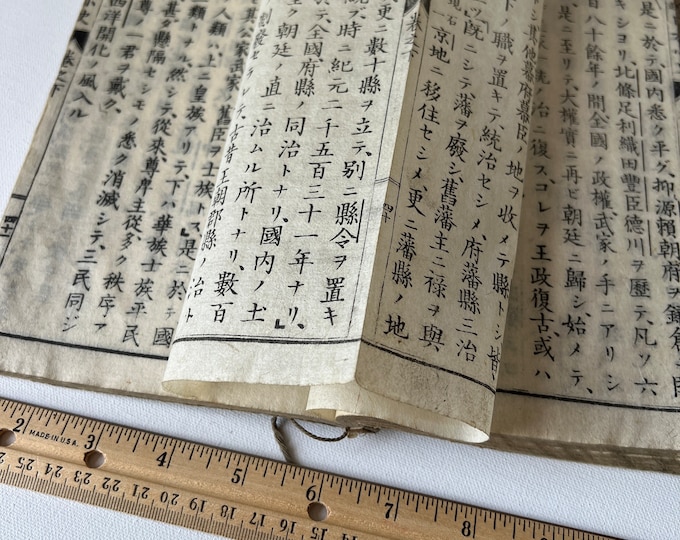 是ニ於テ、國内悉ク平グ、抑源賴朝府ヲ鎌倉ニ開
キシヨリ、北條足利織田豐臣德川ヲ歷テ、凡ソ六
百八十餘年ノ間、全國ノ政權武家ノ手ニアリシ
是ニ至リテ、大權實ニ再ビ朝廷ニ歸シ、始メテ、
ノ治ニ復ス、コレヲ王政復古或ハ
其他舊幕府幕臣ノ地ヲ收メテ縣トシ、皆、
下ノ職ヲ置キテ統治セシメ、府藩縣三治
既ニシテ藩ヲ廢シ、舊藩主ニ祿ヲ與
京地ニ移住セシメ、更ニ藩縣ノ地
卷之下
四十
更ニ數十縣ヲ立テ、別ニ縣令ヲ置キ
統ブ、時ニ紀元二千五百三十一年ナリ、』
テ、全國府縣ノ同治トナリ、國内ノ土
朝廷ノ直ニ治ムル所トナリ、數百
テ、古昔王朝郡縣ノ治ト
其公家武家ノ舊臣ヲ士族ト 是ニ於テ國
人類ハ上ニ皇族アリテ、下ハ華族士族平民
一類トナル、然シテ、從來、尊卑主從多ク秩序ア
甚ダ縣隔セシモノ、悉ク消滅シテ、三民同ジ
一君ヲ戴ク、
西洋開化ノ風入ル
卷之下
四十一
2 MADE IN U.S.A. 3 4 5 6 7